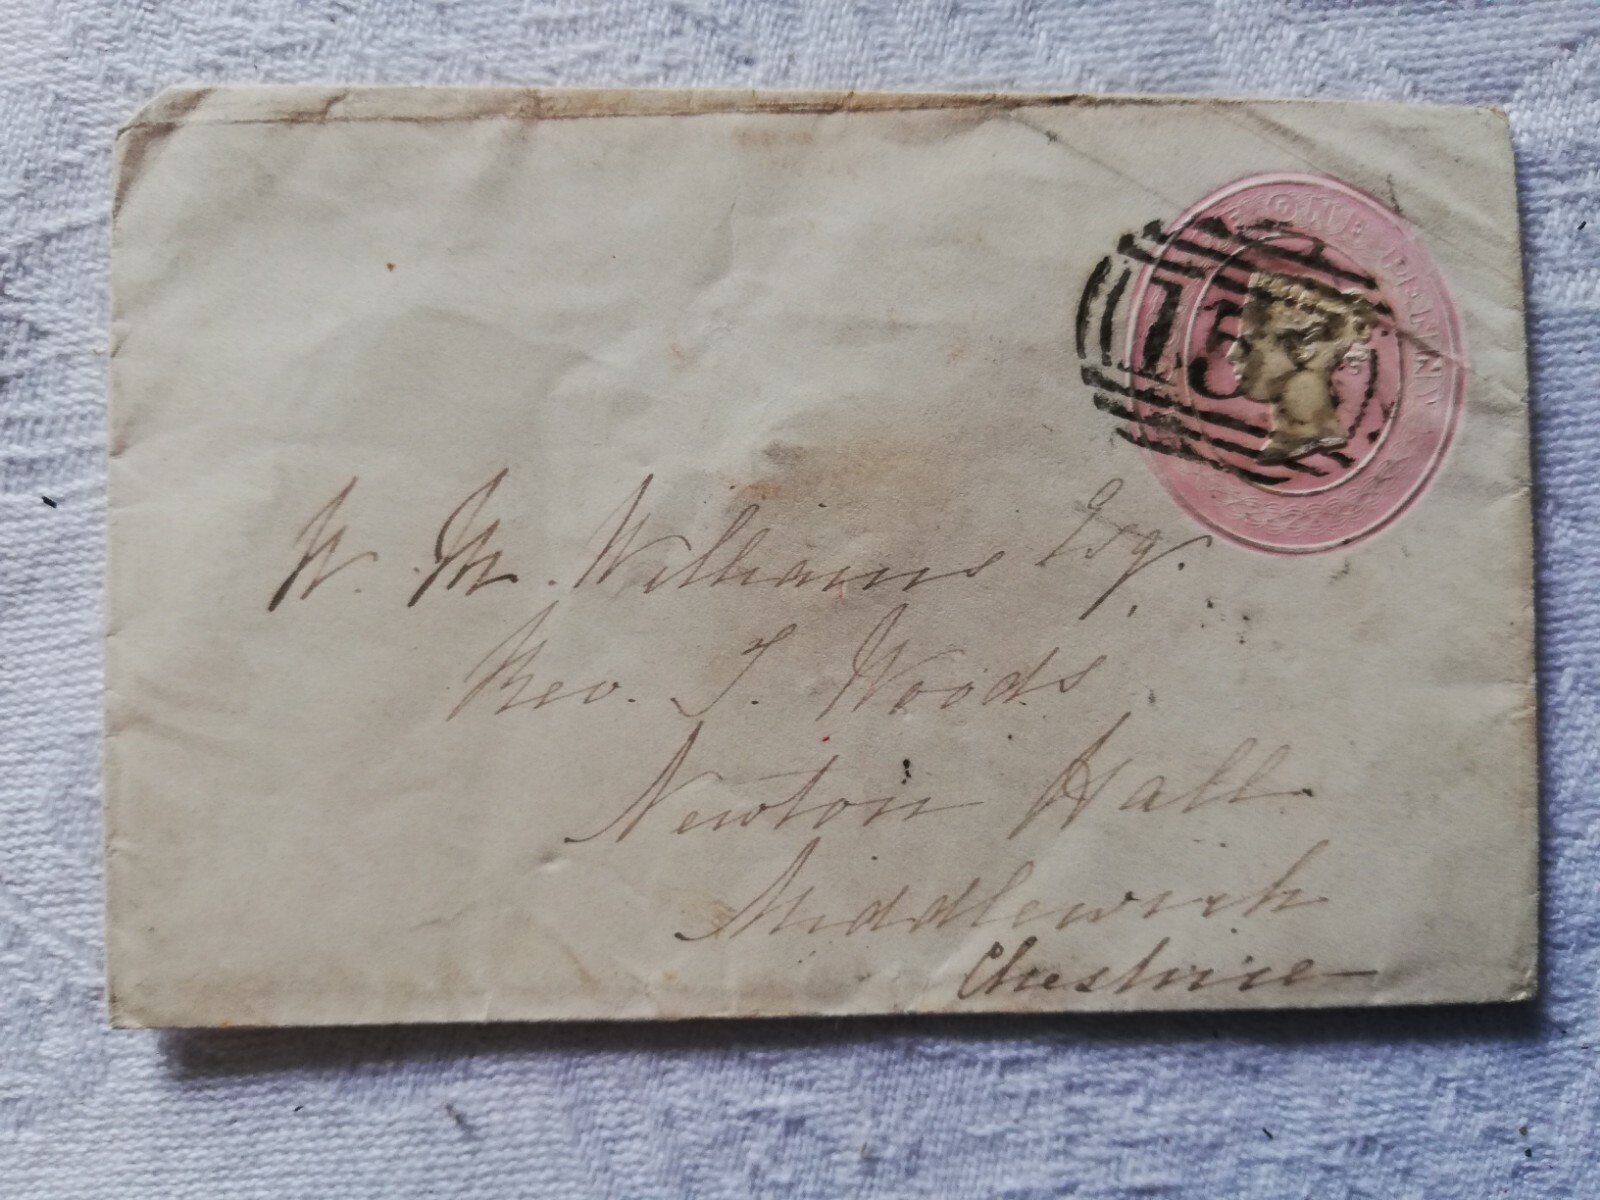 ONE PENNY
15
W. M. Williams Esq.
Rev. J. Woods
Newton Hall
Middlewich
Cheshire